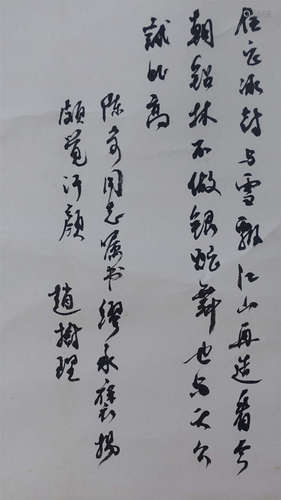 任它冰封与雪飘江山再造看今
朝林不做银蛇舞也与天公
试比高
陈同志嘱书缪承褒扬
颇觉汗颜 趙樹理